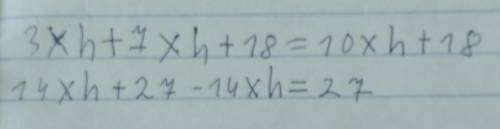 3×h+7×h+18=10×h+18
14×h+27-14×h=27